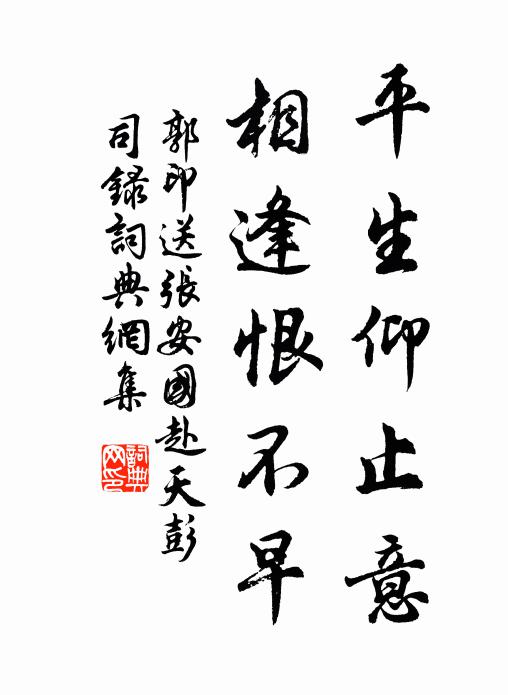 平生仰止意
相逢恨不早
郭印送張安國赴天彭
司録詞典網集
詞典
网印